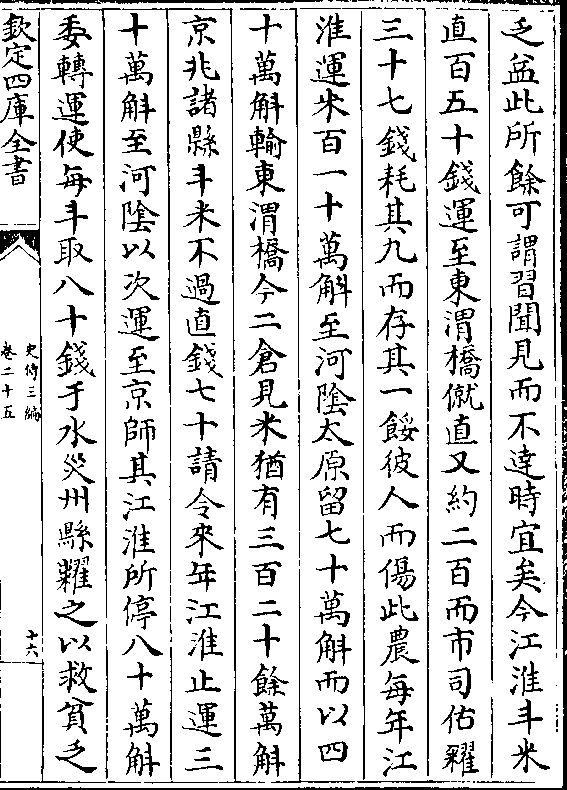 乏益此所餘可謂習聞見而不達時宜矣今江淮斗米
直百五十錢運至東渭橋僦直又約二百而市司估糴
三十七錢耗其九而存其一餒彼人而傷此農每年江
淮運米百一十萬斛至河陰太原留七十萬斛而以四
十萬斛輸東渭橋今二倉見米猶有三百二十餘萬斛
京兆諸縣斗米不過直錢七十請令來年江淮止運三
十萬斛至河陰以次運至京師其江淮所停八十萬斛
委轉運使每斗取八十錢于水災州縣糶之以救貧乏
欽定四庫全書
史傳三編
卷二十五
十六